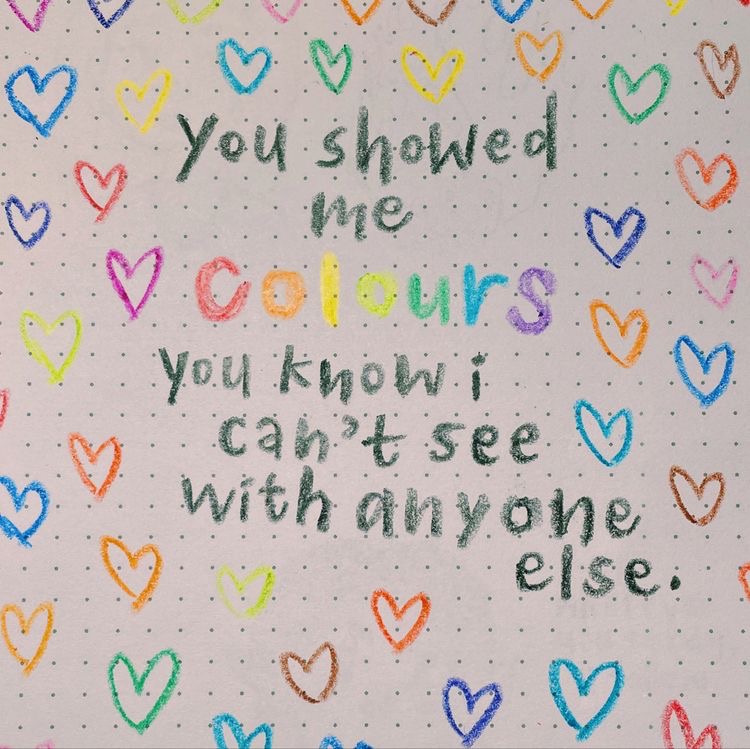 you showed
me
colours
you know i
can't see
with anyone
else.